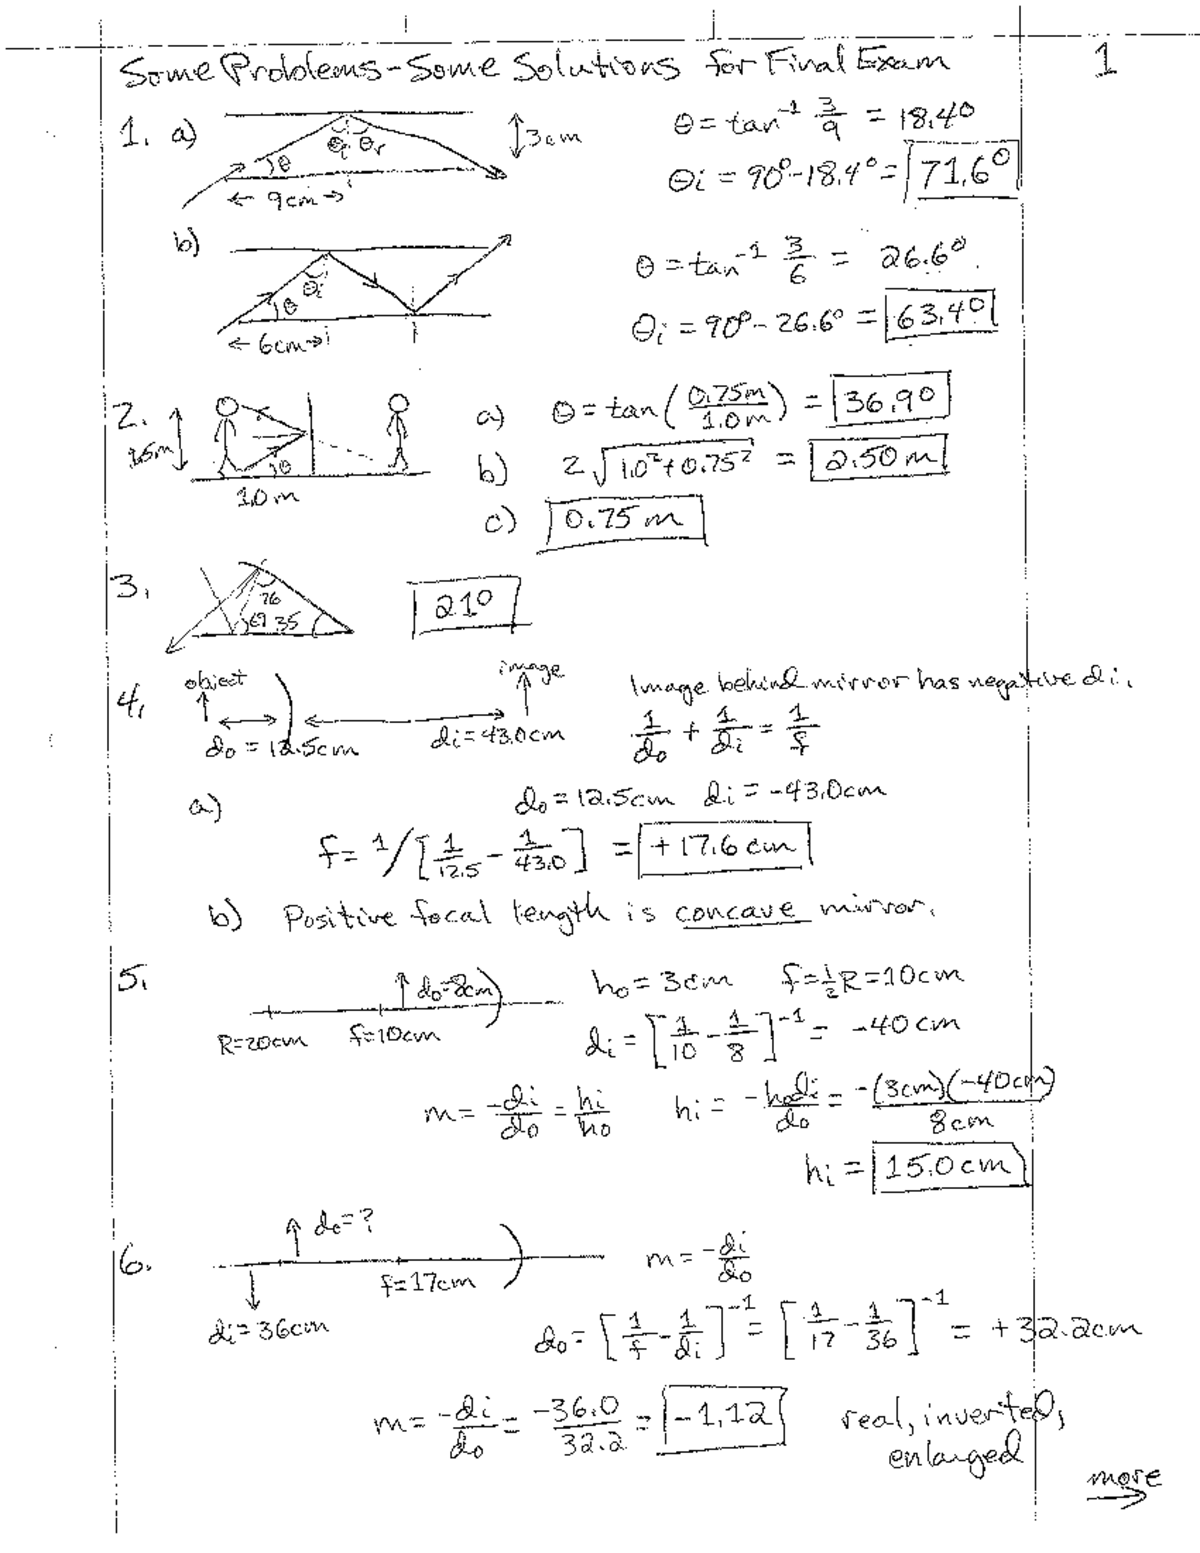 Some Problems-Some Solutions for Final Exam 1
1. a) θi θr θ 3cm ← 9cm →
θ = tan⁻¹ 3/9 = 18.4°
θi = 90°-18.4° = 71.6°
b) θi θ ← 6cm →
θ = tan⁻¹ 3/6 = 26.6°
θi = 90° - 26.6° = 63.4°
2. 1.5m θ 1.0m
a) θ = tan(0.75m/1.0m) = 36.9°
b) 2√(1.0²+0.75²) = 2.50m
c) 0.75m
3. 76 69 35 21°
4. object image
do = 12.5cm di = 43.0cm
Image behind mirror has negative di.
1/do + 1/di = 1/f
a) do = 12.5cm di = -43.0cm
f = 1/[1/12.5 - 1/43.0] = +17.6cm
b) Positive focal length is concave mirror.
5. do=8cm R=20cm f=10cm
ho = 3cm f = ½R = 10cm
di = [1/10 - 1/8]⁻¹ = -40cm
m = -di/do = hi/ho hi = -hodi/do = -(3cm)(-40cm)/8cm
hi = 15.0cm
6. do=? f=17cm di=36cm
m = -di/do
do = [1/f - 1/di]⁻¹ = [1/17 - 1/36]⁻¹ = +32.2cm
m = -di/do = -36.0/32.2 = -1.12 real, inverted,
enlarged
more →